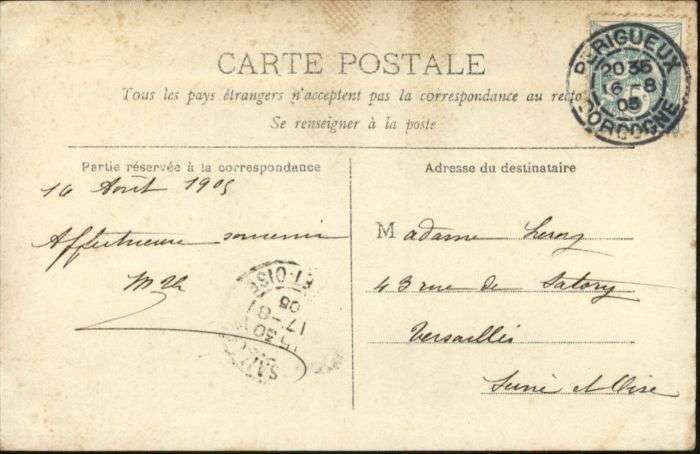 CARTE POSTALE
Tous les pays étrangers n'acceptent pas la correspondance au recto
Se renseigner à la poste
PÉRIGUEUX
20 35
16 - 8
05
DORDOGNE
5
Partie réservée à la correspondance
16 Août 1905
Affectueux souvenir
Adresse du destinataire
Madame Leroy
43 rue de Satory
Versailles
Seine et Oise
ET-OISE
05
17 - 8